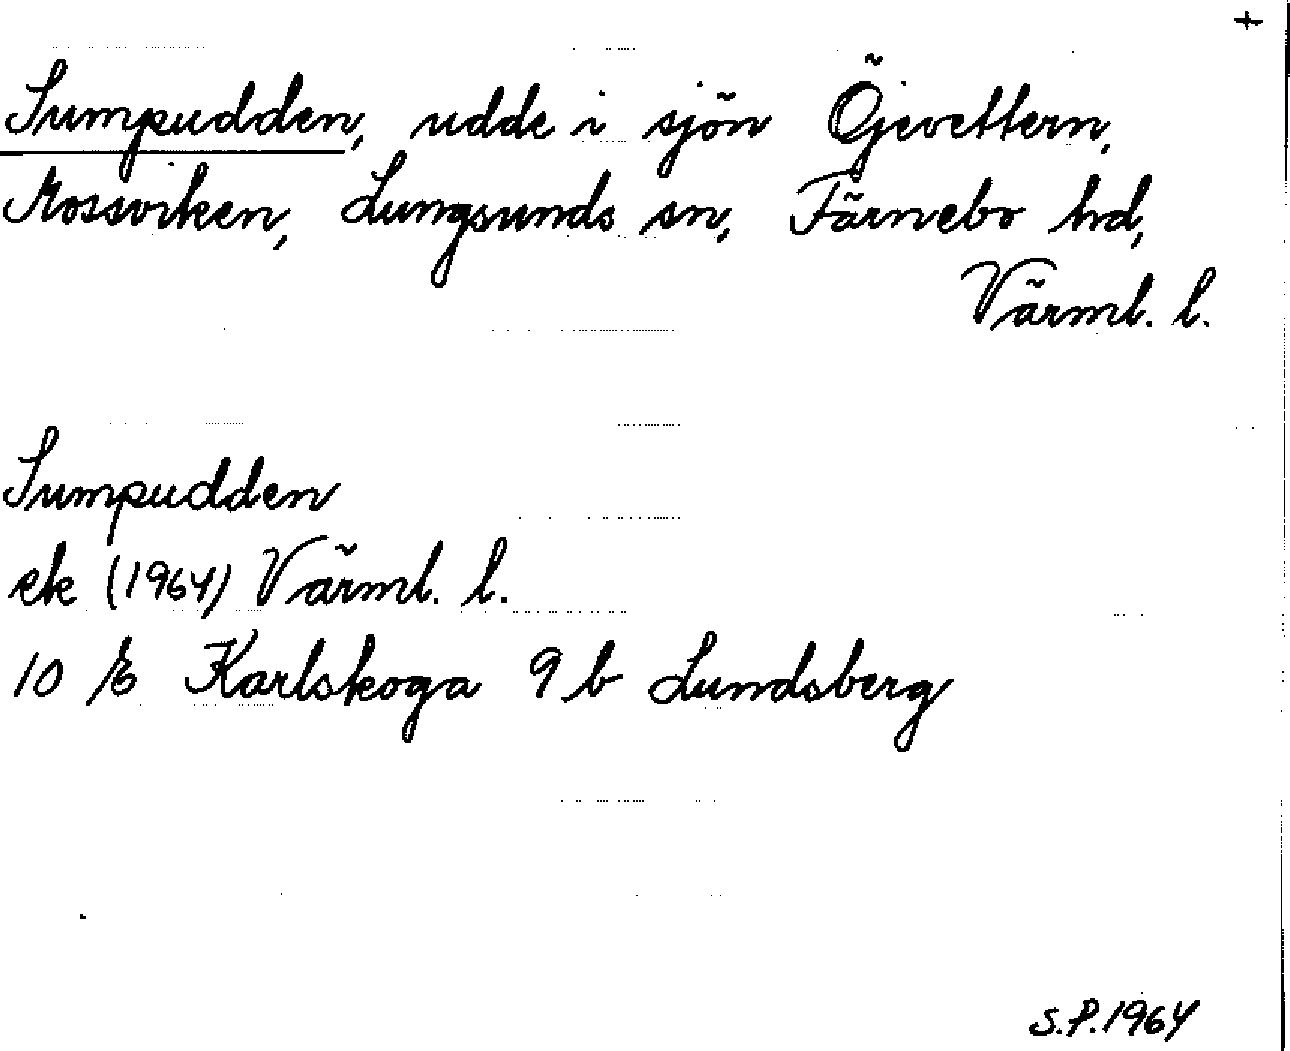 +
Sumpudden, udde i sjön Öjevettern,
Mossviken, Lungsunds sn, Färnebo hd,
Värml. l.
Sumpudden
ek (1964) Värml. l.
10 E Karlskoga 9 b Lundsberg
S.P. 1964